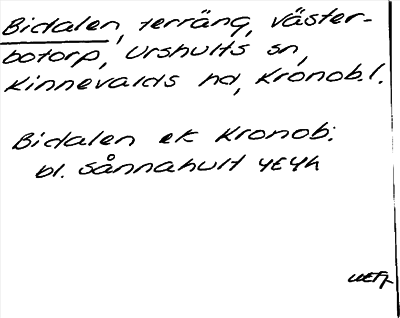 Bidalen, terräng, väster-
botorp, Urshults sn,
Kinnevalds hd, Kronob.l.
Bidalen ek Kronob.
bl. Sånnahult 4E4h